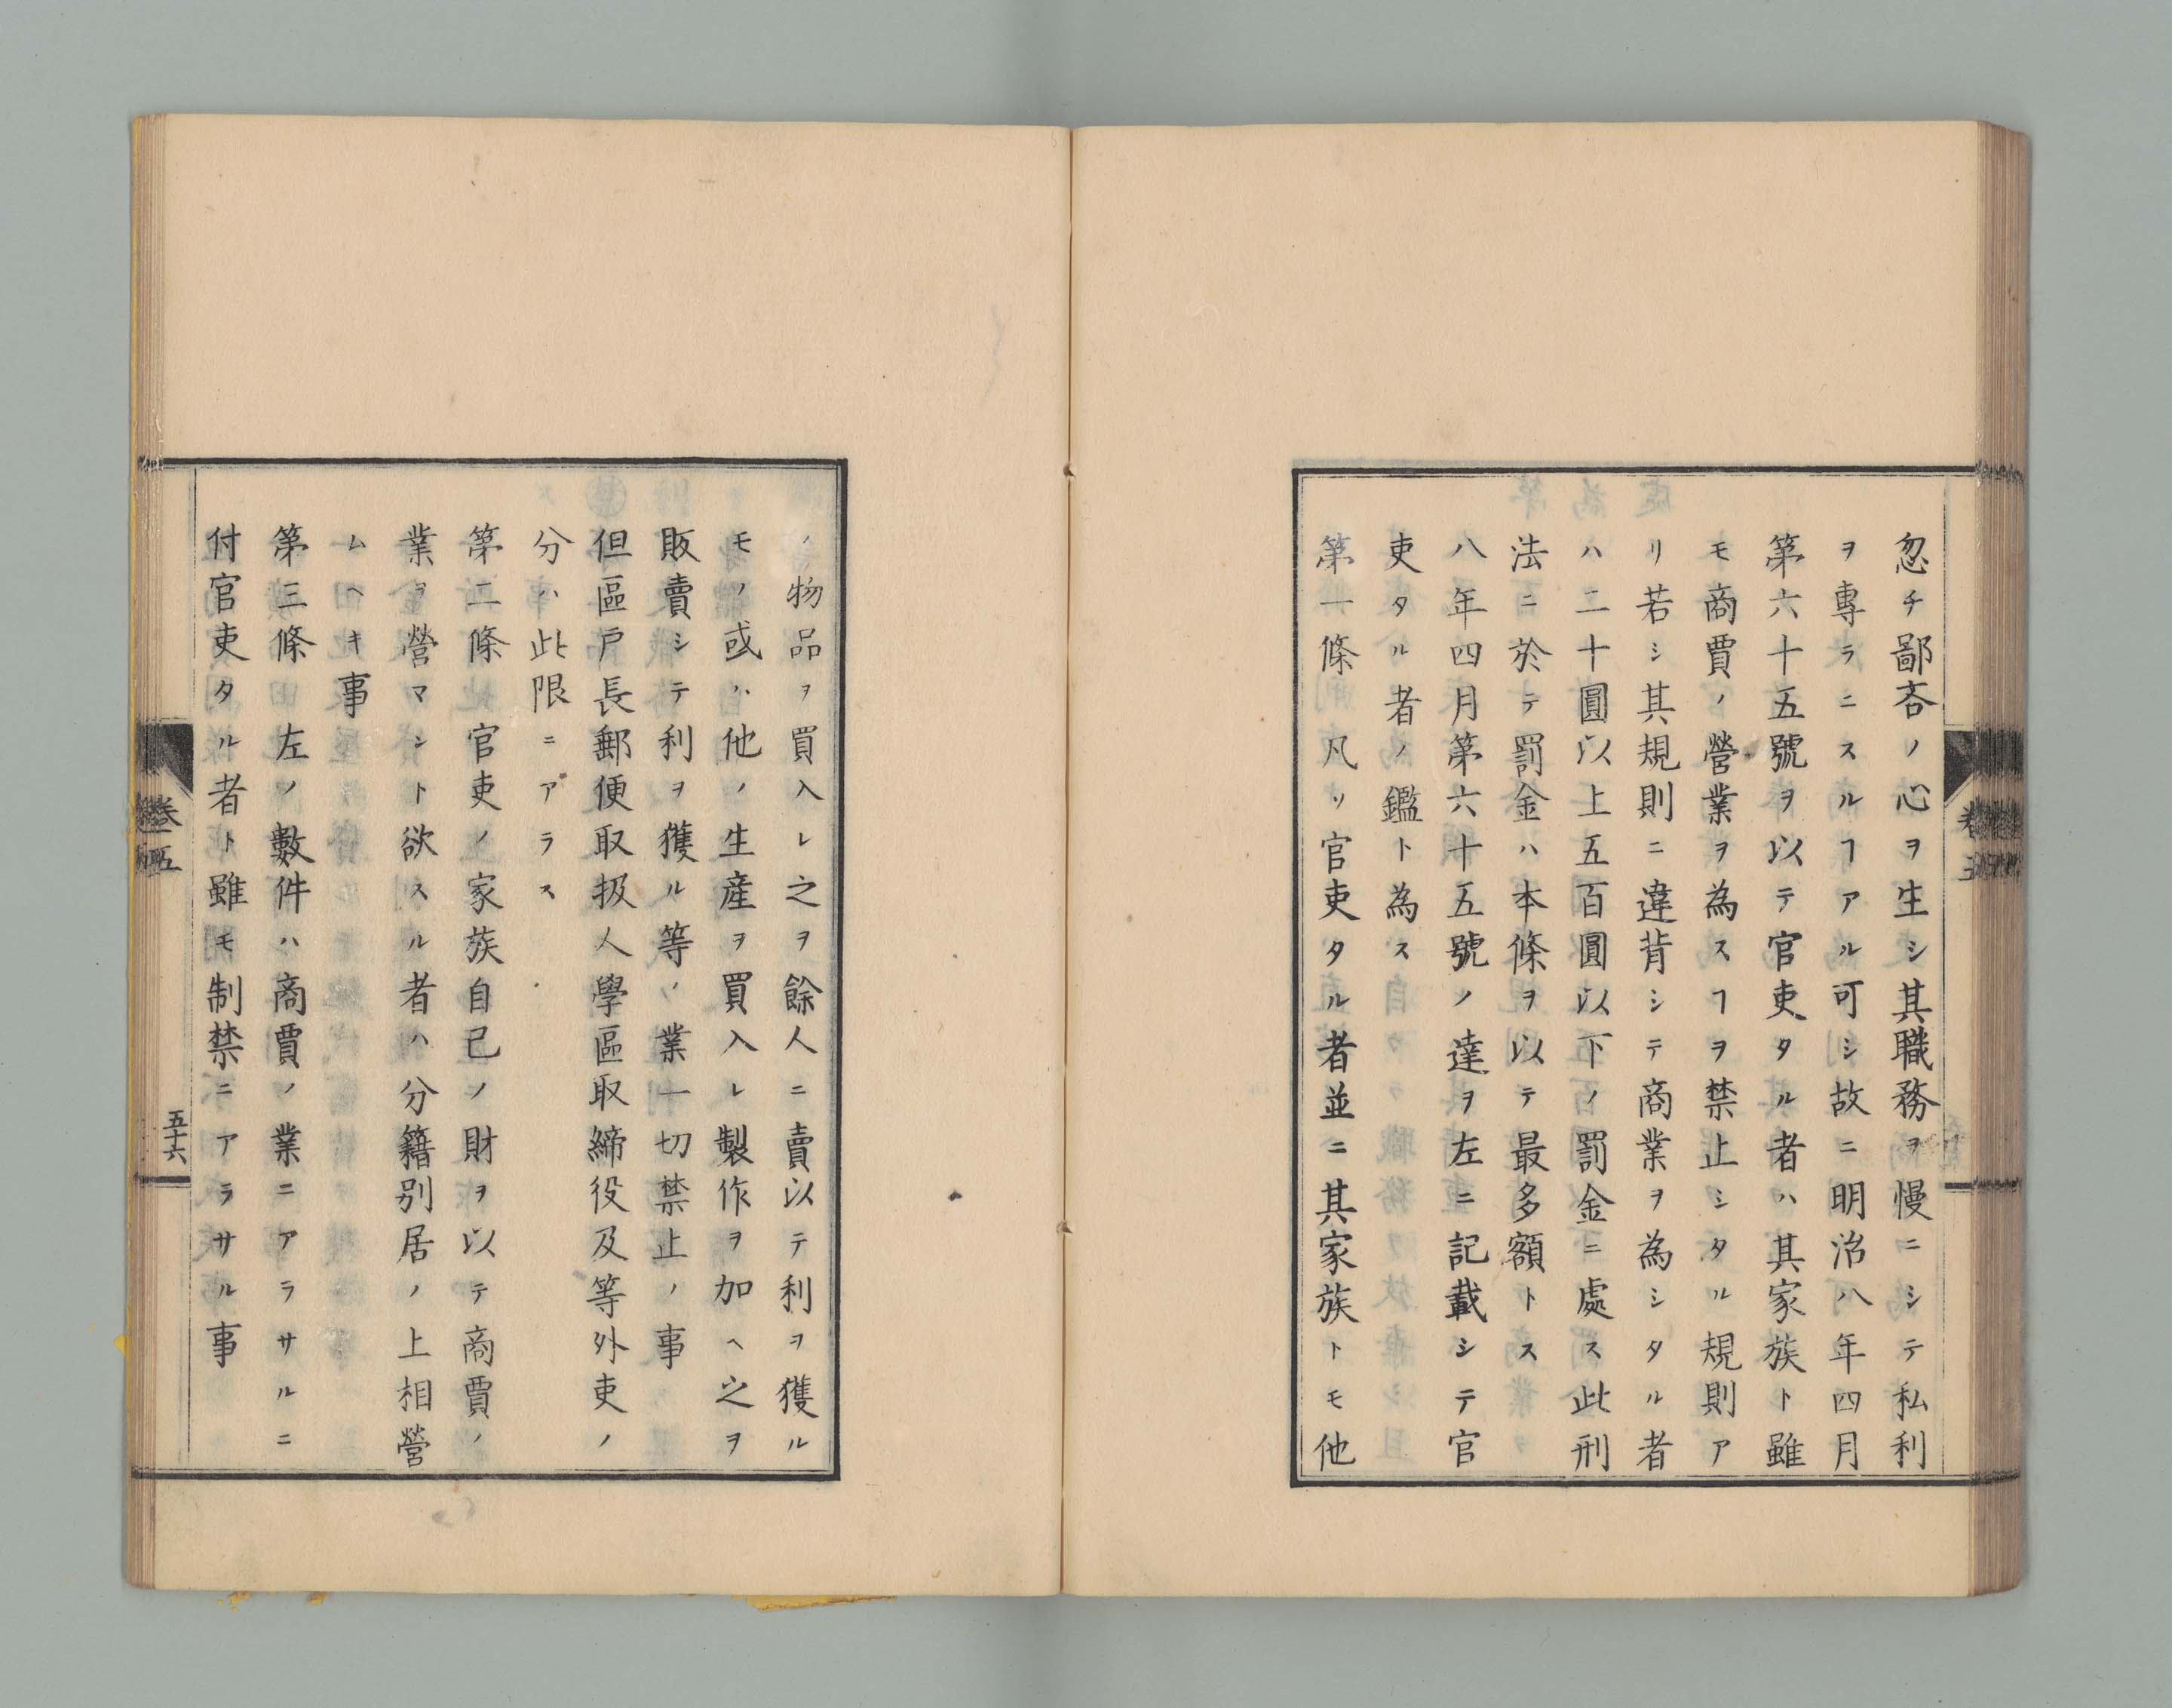 忽チ鄙吝ノ心ヲ生シ其職務ヲ慢ニシテ私利
ヲ專ラニスルヿアル可シ故ニ明治八年四月
第六十五號ヲ以テ官吏タル者ハ其家族ト雖
モ商賈ノ營業ヲ為スヿヲ禁止シタル規則ア
リ若シ其規則ニ違背シテ商業ヲ為シタル者
ハ二十圓以上五百圓以下ノ罰金ニ處ス此刑
法ニ於テ罰金ハ本條ヲ以テ最多額トス
八年四月第六十五號ノ達ヲ左ニ記載シテ官
吏タル者ノ鑑ト為ス
第一條 凡ソ官吏タル者並ニ其家族トモ他
卷五
ノ物品ヲ買入レ之ヲ餘人ニ賣以テ利ヲ獲ル
モノ或ハ他ノ生産ヲ買入レ製作ヲ加ヘ之ヲ
販賣シテ利ヲ獲ル等ノ業一切禁止ノ事
但區戸長郵便取扱人學區取締役及等外吏ノ
分ハ此限ニアラス
第二條 官吏ノ家族自己ノ財ヲ以テ商賈ノ
業ヲ營マント欲スル者ハ分籍別居ノ上相營
ムヘキ事
第三條 左ノ數件ハ商賈ノ業ニアラサルニ
付官吏タル者ト雖モ制禁ニアラサル事
卷五
五十六